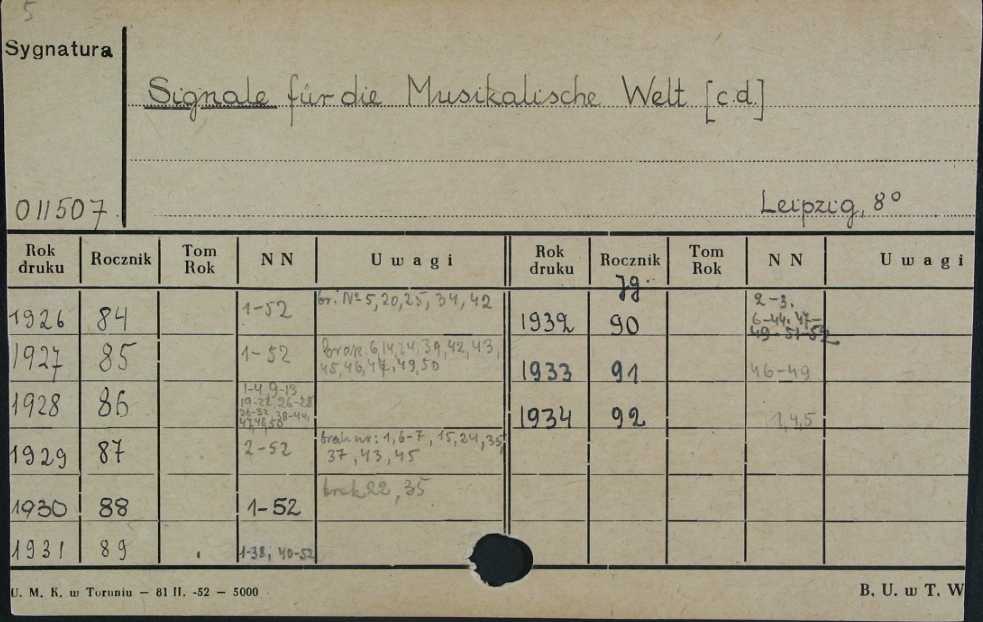 5
Sygnatura
Signale für die Musikalische Welt [c.d.]
011507
Leipzig, 8°
Rok druku Rocznik Tom Rok NN Uwagi Rok druku Rocznik Tom Rok NN Uwagi
Jg
1926 84 1-52 br. № 5, 20, 25, 34, 42
1927 85 1-52 Brak. 6, 14, 24, 39, 42, 43,
45, 46, 47, 49, 50
1928 86 1-4, 9-13
19-22, 26-28
38-44,
1929 87 2-52 brak nr: 1, 6-7, 15, 24, 35,
37, 43, 45
1930 88 1-52 brak 22, 35
1931 89 1-38, 40-52
1932 90 2-3.
6-44. 47-
49. 51-52
1933 91 46-49
1934 92 1,4,5
U. M. K. w Toruniu — 81 II. -52 — 5000
B. U. w T. W